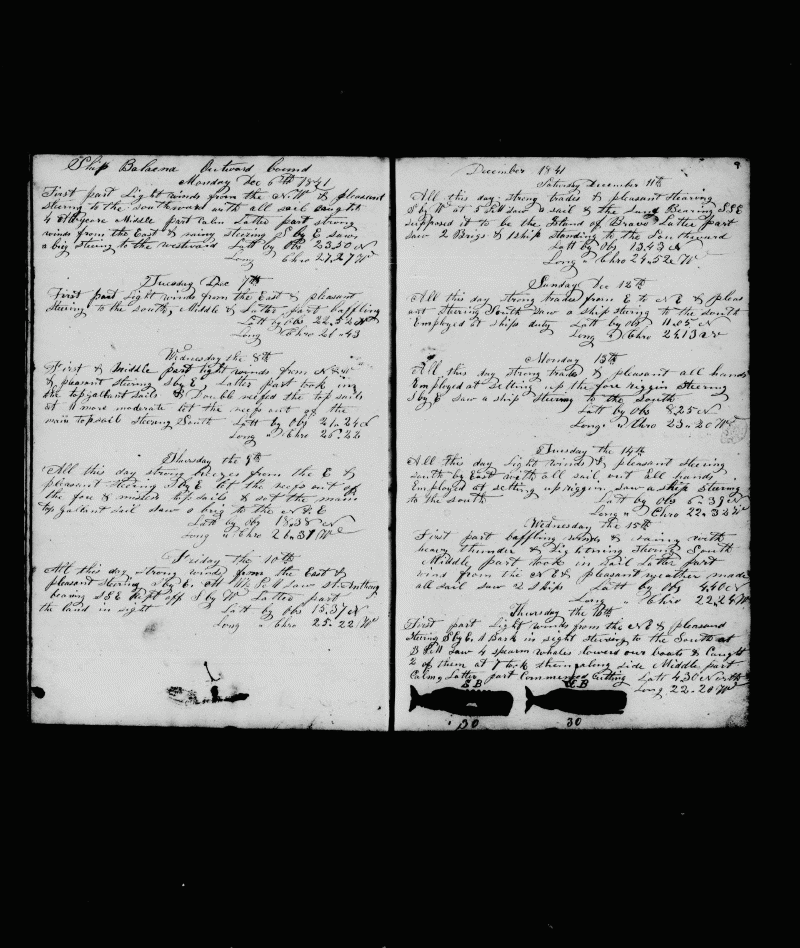 Ship Balaena outward bound
Monday Dec 6th 1841
First part Light winds from the N.W & pleasant
Stering to the southward with all sail caught
4 Albycore Middle part Calm Latter part strong
winds from the East & rainy steering S by E saw
a brig stering to the westward Latt by Obs 23.50 N
Long Chro 21.27 W
Tuesday Dec 7th
First part Light winds from the East & pleasant
Stering to the south, Middle & Latter part baffling
Latt by obs 22.52 N
Long Chro 21.43
Wednesday the 8th
First & Middle part light winds from N &
& pleasant stering S by E Latter part took in
the topgallant sails & Double reefed the top sails
at 11 more moderate let the reefs out of the
main topsail Stering South Latt by Obs 21.24 N
Long " Chro 25.22
Thursday the 9th
All this day strong breezes from the E &
pleasant stering S by E let the reefs out of
the fore & mizen top sails & set the main
top gallant sail saw a brig to the N & E
Latt by Obs 18.38 N
Long " Chro 21.37 W
Friday the 10th
All this day strong winds from the East &
pleasant stering S by E. At P.M saw St. Anthony
bearing SSE kept off S by W Latter part
the land in sight Latt by Obs 15.37 N
Long " Chro 25.22 W
December 1841
9
Saturday December 11th
All this day strong trades & pleasant Stearing
S by W at 5 P.M saw a sail & the Land Bearing S.S.E
supposed it to be the Island of Bravo Latter part
saw 2 Brigs & 1 ship standing to the Southward
Latt by Obs 13.43 N
Long Chro 24.52 W
Sunday Dec 12th
All this day strong trades from E to N E & pleas
ant Stering South saw a ship stering to the south
Employed at ships duty Latt by Obs 11.05 N
Long Chro 24.13
Monday 13th
All this day strong trades & pleasant all hands
Employed at setting up the fore riggin Stering
S by E saw a ship Stering to the South
Latt by Obs 8.25 N
Long " Chro 23.20 W
Tuesday the 14th
All this day Light winds & pleasant stering
South by East with all sail out All hands
Employed at setting up riggin saw a ship stering
to the south Latt by Obs 6.39 N
Long " Chro 22.32
Wednesday the 15th
First part baffling winds & rainy with
heavy thunder & Lightning Stering South
Middle part took in sail Latter part
wind from the N E & pleasant weather made
all sail saw 2 Ships Latt by Obs 4.50 N
Long " Chro 22.24 W
Thursday the 16th
First part Light winds from the N E & pleasand
Stering S by E. A Bark in sight stering to the South at
3 P.M saw 4 sparm whales lowerd our boats & Caught
2 of them at 7 took them along side Middle part
Calm Latter part Commenced Cutting Latt 4.30 North
Long 22.20 W
S B
30
30